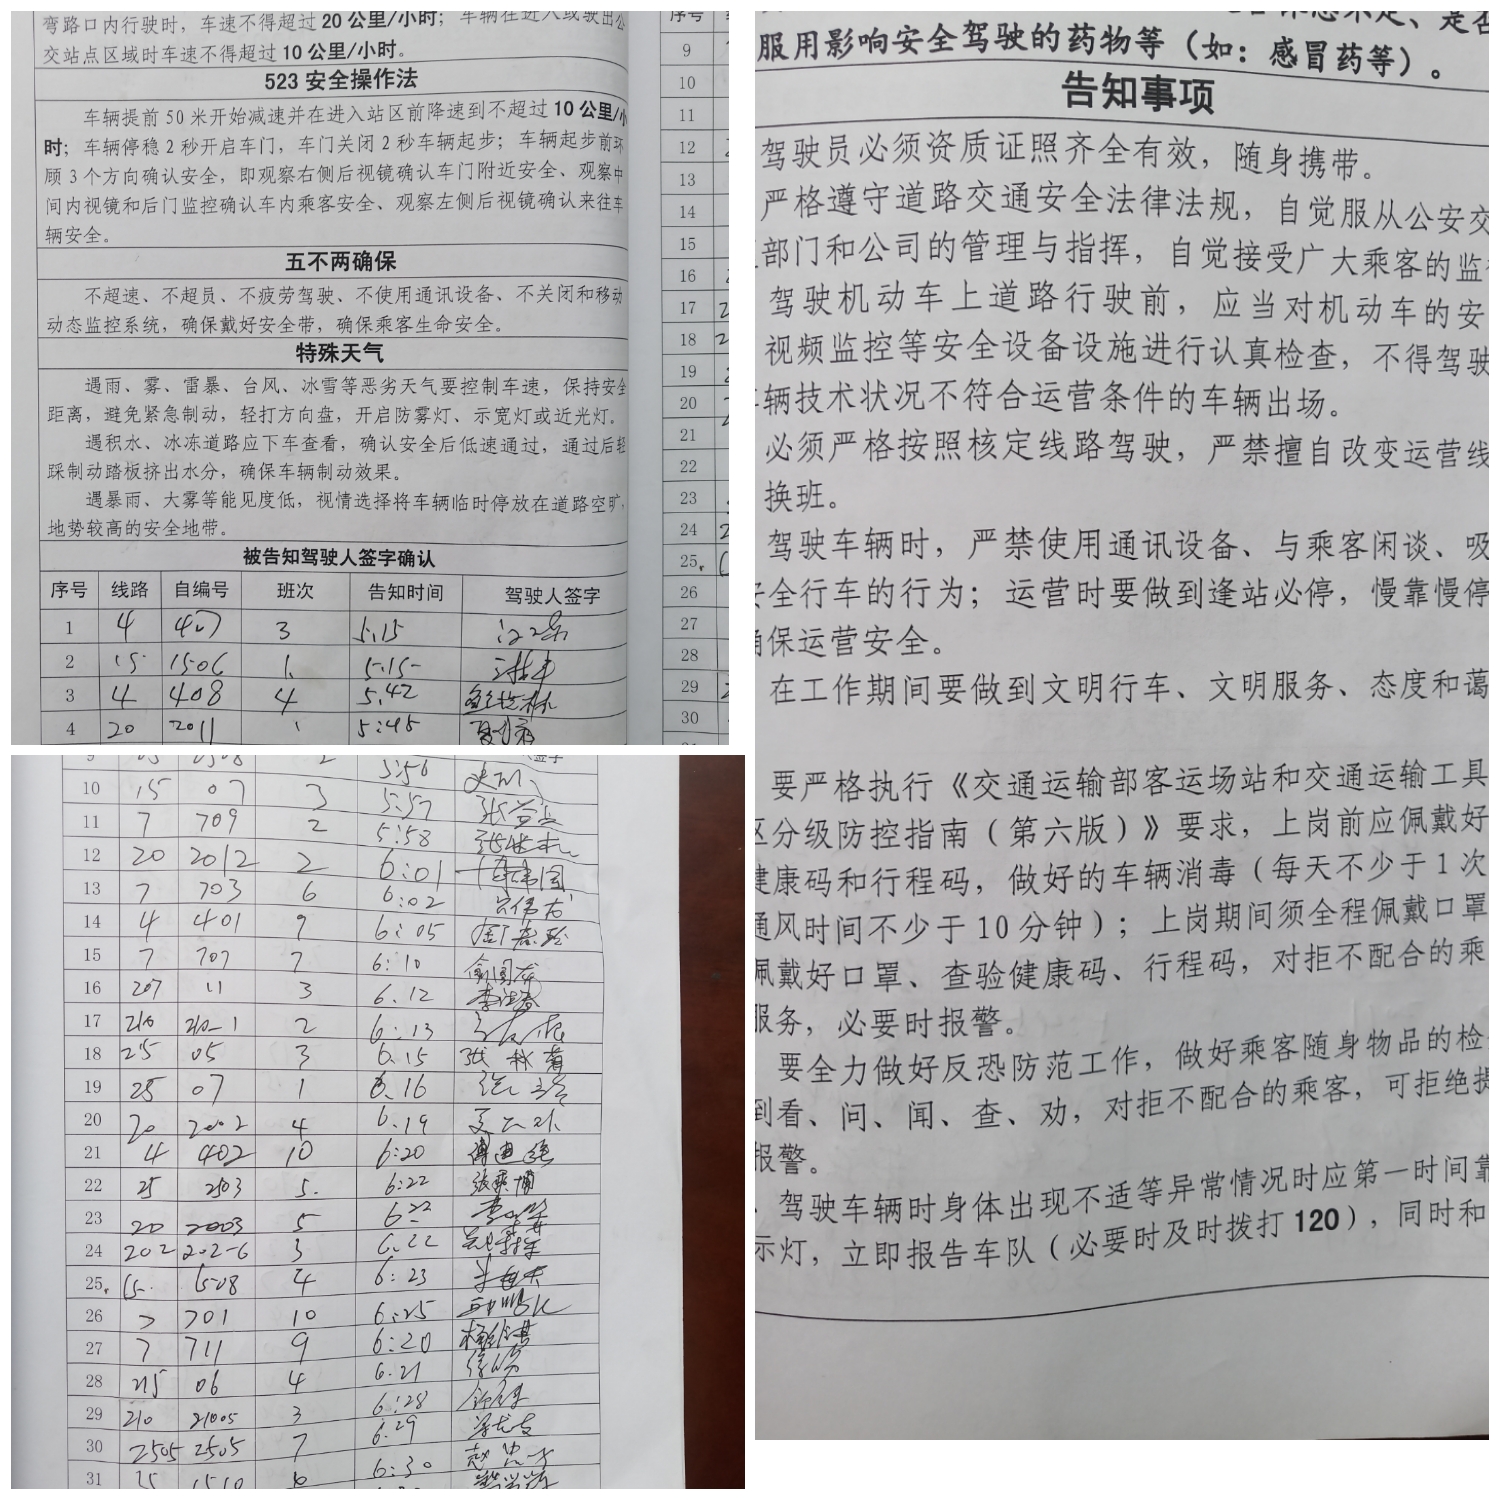 弯路口内行驶时，车速不得超过20公里/小时；车辆在进入或驶出公
交站点区域时车速不得超过10公里/小时。
523安全操作法
车辆提前50米开始减速并在进入站区前降速到不超过10公里/小
时；车辆停稳2秒开启车门，车门关闭2秒车辆起步；车辆起步前环
顾3个方向确认安全，即观察右侧后视镜确认车门附近安全、观察中
间内视镜和后门监控确认车内乘客安全、观察左侧后视镜确认来往车
辆安全。
五不两确保
不超速、不超员、不疲劳驾驶、不使用通讯设备、不关闭和移动
动态监控系统，确保戴好安全带，确保乘客生命安全。
特殊天气
遇雨、雾、雷暴、台风、冰雪等恶劣天气要控制车速，保持安全
距离，避免紧急制动，轻打方向盘，开启防雾灯、示宽灯或近光灯。
遇积水、冰冻道路应下车查看，确认安全后低速通过，通过后轻
踩制动踏板挤出水分，确保车辆制动效果。
遇暴雨、大雾等能见度低，视情选择将车辆临时停放在道路空旷，
地势较高的安全地带。
被告知驾驶人签字确认
序号 线路 自编号 班次 告知时间 驾驶人签字
1 4 407 3 5.15
2 15 1506 1 5.15
3 4 408 4 5.42
4 20 2011 1 5:45
序号
9
10
11
12
13
14
15
16
17
18
19
20
21
22
23
24
25
26
27
28
29
30
服用影响安全驾驶的药物等（如：感冒药等）。
告知事项
驾驶员必须资质证照齐全有效，随身携带。
严格遵守道路交通安全法律法规，自觉服从公安交
部门和公司的管理与指挥，自觉接受广大乘客的监
驾驶机动车上道路行驶前，应当对机动车的安
视频监控等安全设备设施进行认真检查，不得驾驶
辆技术状况不符合运营条件的车辆出场。
必须严格按照核定线路驾驶，严禁擅自改变运营线
换班。
驾驶车辆时，严禁使用通讯设备、与乘客闲谈、吸
安全行车的行为；运营时要做到逢站必停，慢靠慢停
确保运营安全。
在工作期间要做到文明行车、文明服务、态度和蔼
要严格执行《交通运输部客运场站和交通运输工具
区分级防控指南（第六版）》要求，上岗前应佩戴好
健康码和行程码，做好的车辆消毒（每天不少于1次
通风时间不少于10分钟）；上岗期间须全程佩戴口罩
佩戴好口罩、查验健康码、行程码，对拒不配合的乘
服务，必要时报警。
要全力做好反恐防范工作，做好乘客随身物品的检
到看、问、闻、查、劝，对拒不配合的乘客，可拒绝提
报警。
驾驶车辆时身体出现不适等异常情况时应第一时间靠
示灯，立即报告车队（必要时及时拨打120），同时和
10 15 07 3 5:57
11 7 709 2 5:58
12 20 2012 2 6:01
13 7 703 6 6:02
14 4 401 9 6:05
15 7 707 7 6:10
16 207 11 3 6.12
17 210 210-1 2 6:13
18 25 05 3 6.15
19 25 07 1 6.16
20 20 2002 4 6.19
21 4 402 10 6:20
22 25 2503 5. 6:22
23 20 2003 5 6:22
24 202 202-6 3 6.22
25 15 1508 4 6:23
26 7 701 10 6:25
27 7 711 9 6:20
28 215 06 4 6.21
29 210 21005 3 6:28
30 2505 2505 7 6:29
31 15 1510 6 6:30